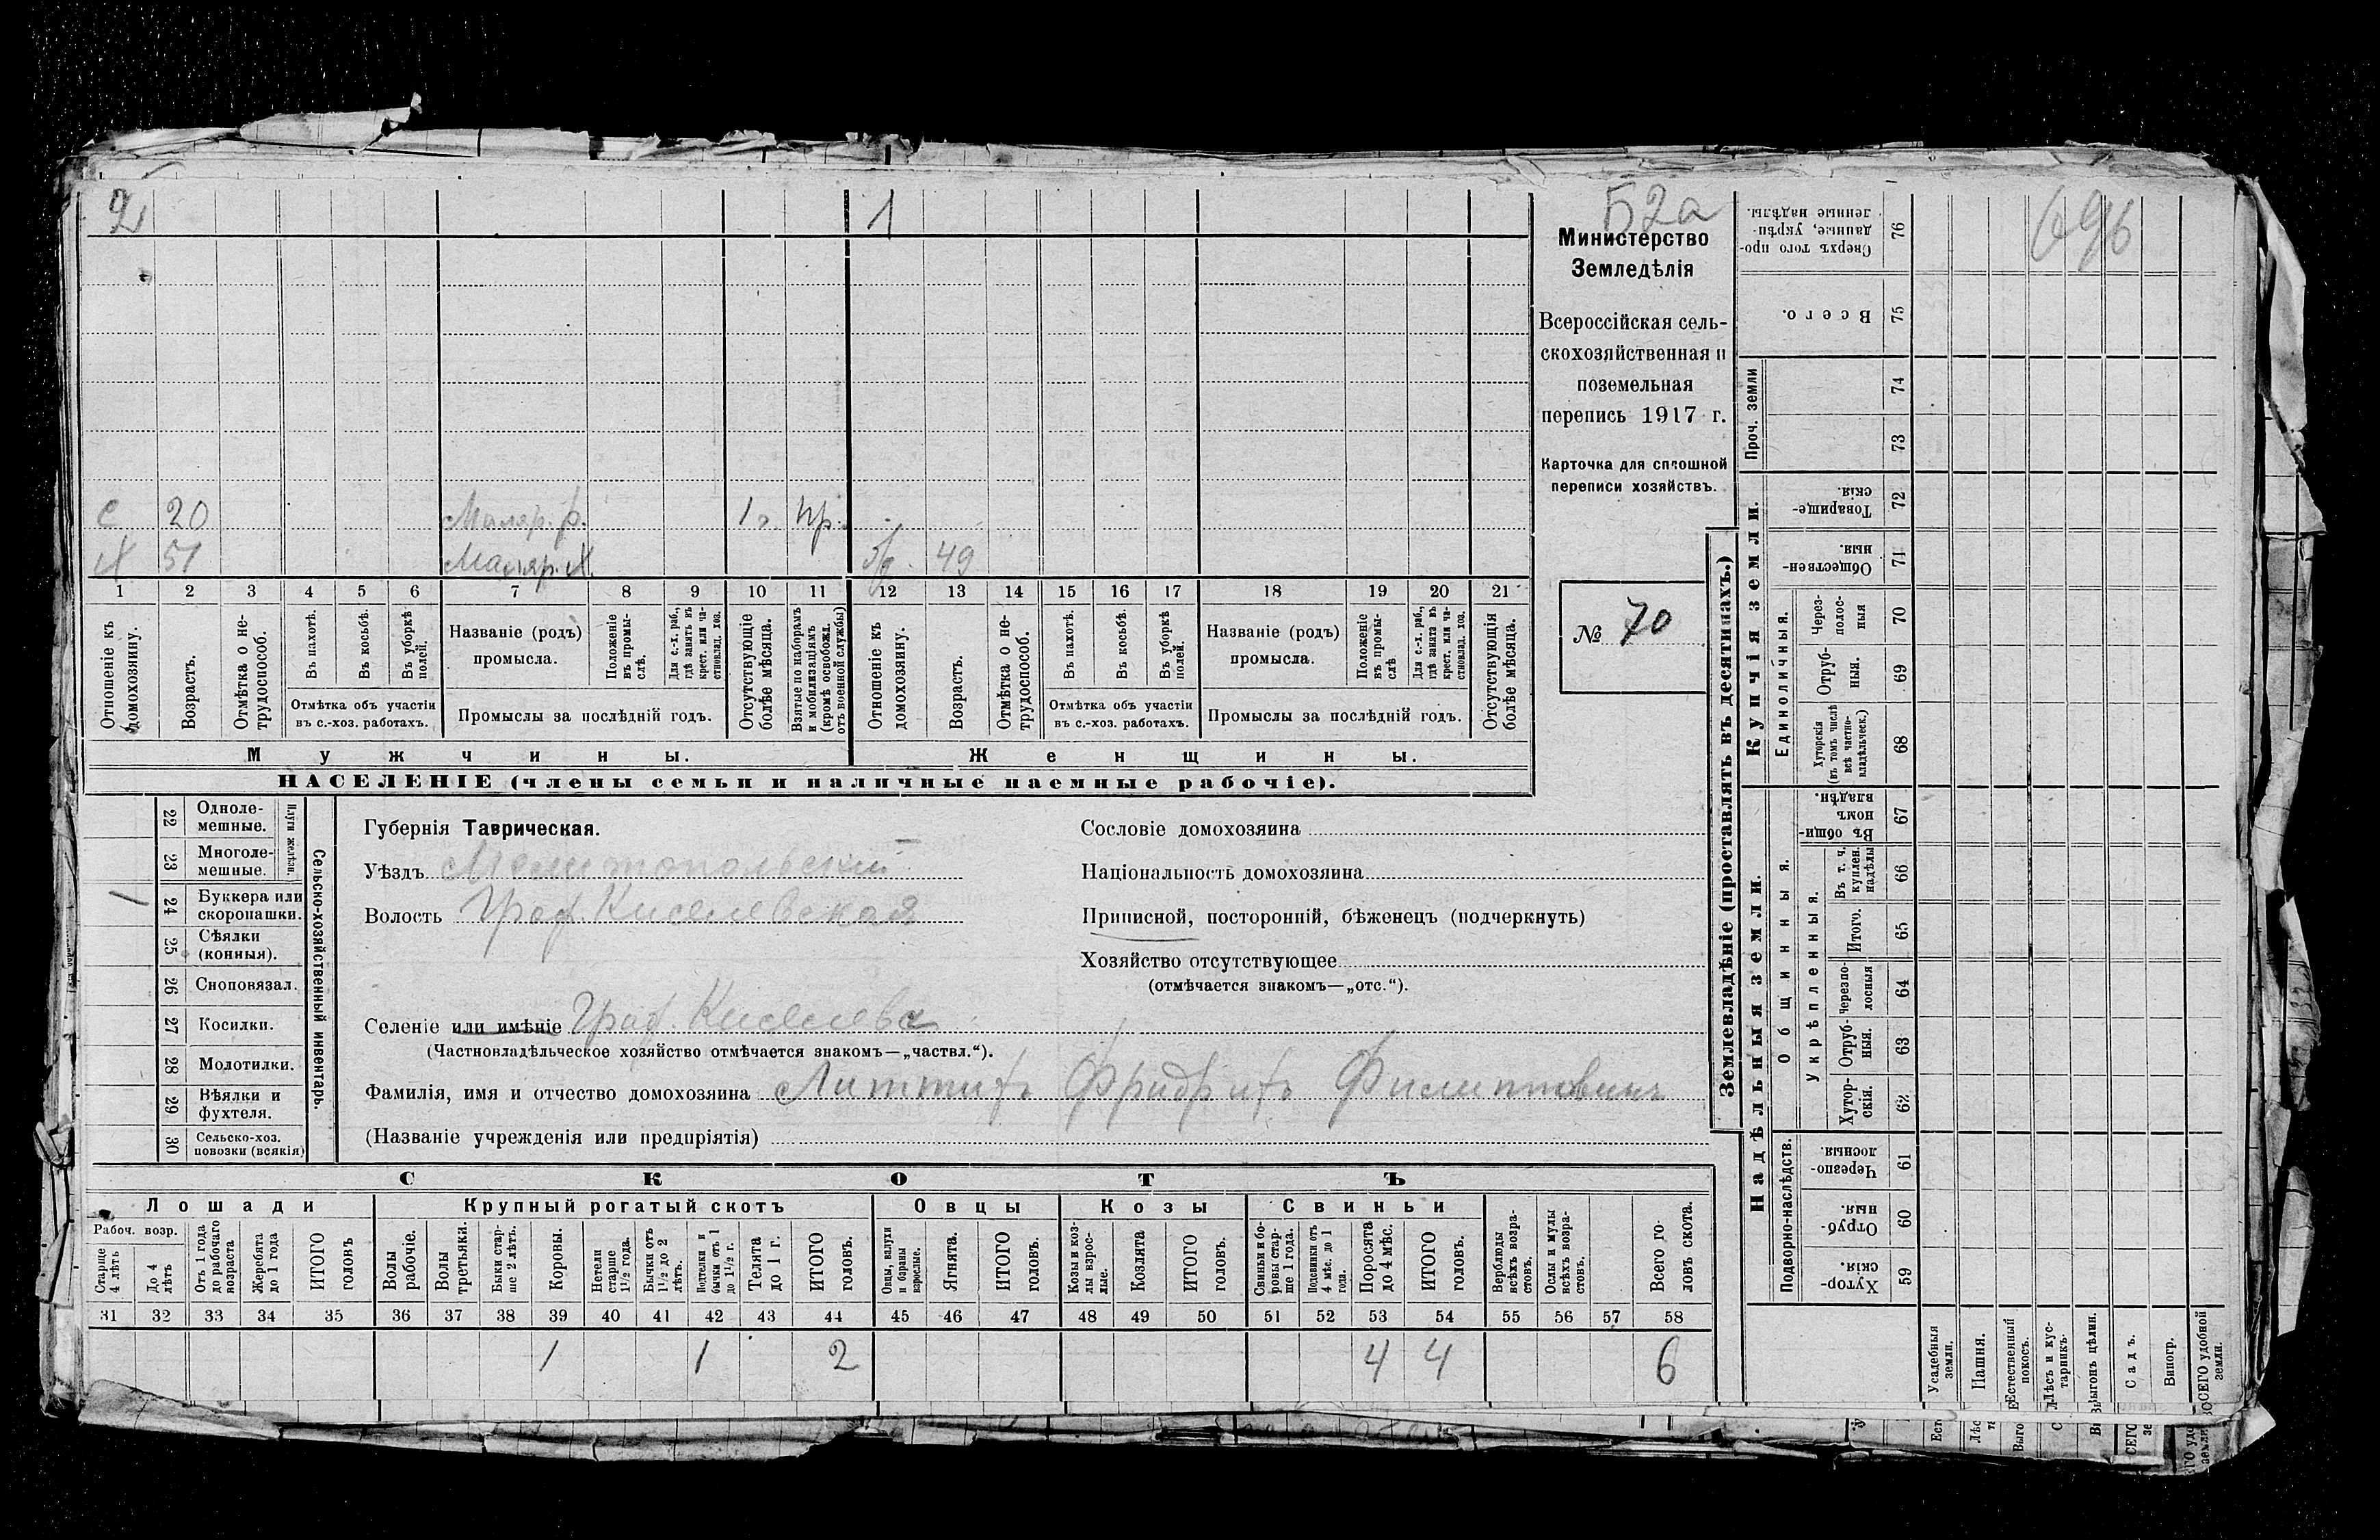 2
1
52а
696
Министерство
Земледѣлія
Всероссійская сель-
скохозяйственная и
поземельная
перепись 1917 г.
Карточка для сплошной
переписи хозяйствъ.
№ 70
с 20 Маляр. р. 1 г. пр.
Х 51 Маляр. Х. 49
1 2 3 4 5 6 7 8 9 10 11 12 13 14 15 16 17 18 19 20 21
Отношеніе къ домохозяину.
Возрастъ.
Отмѣтка о не-трудоспособ.
Въ пахотѣ.
Въ косьбѣ.
Въ уборкѣ полей.
Отмѣтка объ участіи
въ с.-хоз. работахъ.
Названіе (родъ)
промысла.
Положеніе въ промы-слѣ.
Для с.-х. раб., гдѣ занятъ въ крест. или ча-стновлад. хоз.
Промыслы за послѣдній годъ.
Отсутствующіе болѣе мѣсяца.
Взятые по наборамъ и мобилизаціямъ (кромѣ освобожд. отъ военной службы)
Отношеніе къ домохозяину.
Возрастъ.
Отмѣтка о не-трудоспособ.
Въ пахотѣ.
Въ косьбѣ.
Въ уборкѣ полей.
Отмѣтка объ участіи
въ с.-хоз. работахъ.
Названіе (родъ)
промысла.
Положеніе въ промы-слѣ
Для с.-х. раб., гдѣ занята въ крест. или ча-стновлад. хоз.
Промыслы за послѣдній годъ.
Отсутствующія болѣе мѣсяца.
Мужчины.
Женщины.
НАСЕЛЕНІЕ (члены семьи и наличные наемные рабочіе).
22 Одноле-мешные.
23 Многоле-мешные.
Плуги желѣзн.
1 24 Буккера или скоропашки.
25 Сѣялки (конныя).
26 Сноповязал.
27 Косилки.
28 Молотилки.
29 Вѣялки и фухтеля.
30 Сельско-хоз. повозки (всякія)
Сельско-хозяйственный инвентарь.
Губернія Таврическая.
Уѣздъ Мелитопольскій
Волость Граф. Киселевская
Селеніе или имѣніе Граф. Киселевка
(Частновладѣльческое хозяйство отмѣчается знакомъ—„частвл.“).
Фамилія, имя и отчество домохозяина Литтихъ Фридрихъ Филипповичъ
(Названіе учрежденія или предпріятія)
Сословіе домохозяина
Національность домохозяина
Приписной, посторонній, бѣженецъ (подчеркнуть)
Хозяйство отсутствующее
(отмѣчается знакомъ—„отс.“).
СКОТЪ
Лошади
Крупный рогатый скотъ
Овцы
Козы
Свиньи
Рабоч. возр.
Старше 4 лѣтъ
До 4 лѣтъ
Отъ 1 года до рабочаго возраста
Жеребята до 1 года
ИТОГО головъ
Волы рабочіе.
Волы третьяки.
Быки стар-ше 2 лѣтъ.
Коровы.
Нетели старше 1½ года.
Бычки отъ 1½ до 2 лѣтъ.
Подтелки и бычки отъ 1 до 1½ г.
Телята до 1 г.
ИТОГО головъ.
Овцы, валухи и бараны взрослые.
Ягнята.
ИТОГО головъ.
Козы и коз-лы взрос-лые.
Козлята
ИТОГО головъ.
Свиньи и бо-ровы стар-ше 1 года.
Подсвинки отъ 4 мѣс. до 1 года.
Поросята до 4 мѣс.
ИТОГО головъ.
Верблюды всѣхъ возра-стовъ.
Ослы и мулы всѣхъ возра-стовъ.
Всего го-ловъ скота.
31 32 33 34 35 36 37 38 39 40 41 42 43 44 45 46 47 48 49 50 51 52 53 54 55 56 57 58
1 1 2 4 4 6
Землевладѣніе (проставлять въ десятинахъ.)
Купчія земли.
Надѣльныя земли.
Проч. земли
Единоличныя.
Общинныя.
Укрѣпленныя.
Подворно-наслѣдств.
76 Сверхъ того про-данные, укрѣп-ленные надѣлы.
75 Всего.
74
73
72 Товарище-скія.
71 Обществен-ныя.
70 Через-полос-ныя
69 Отруб-ныя.
68 Хуторскія (въ томъ числѣ всѣ частно-владѣльческ.)
67 Въ общи-номъ владѣн.
66 Въ т. ч. куплен. надѣлы
65 Итого.
64 Черезпо-лосныя
63 Отруб-ныя.
62 Хутор-скія.
61 Черезпо-лосныя.
60 Отруб-ныя.
59 Хутор-скія.
Усадебныя земли.
Пашня.
Естественный покосъ.
Лѣсъ и кус-тарникъ.
Выгонъ цѣлин.
Садъ.
Виногр.
ВСЕГО удобной земли.